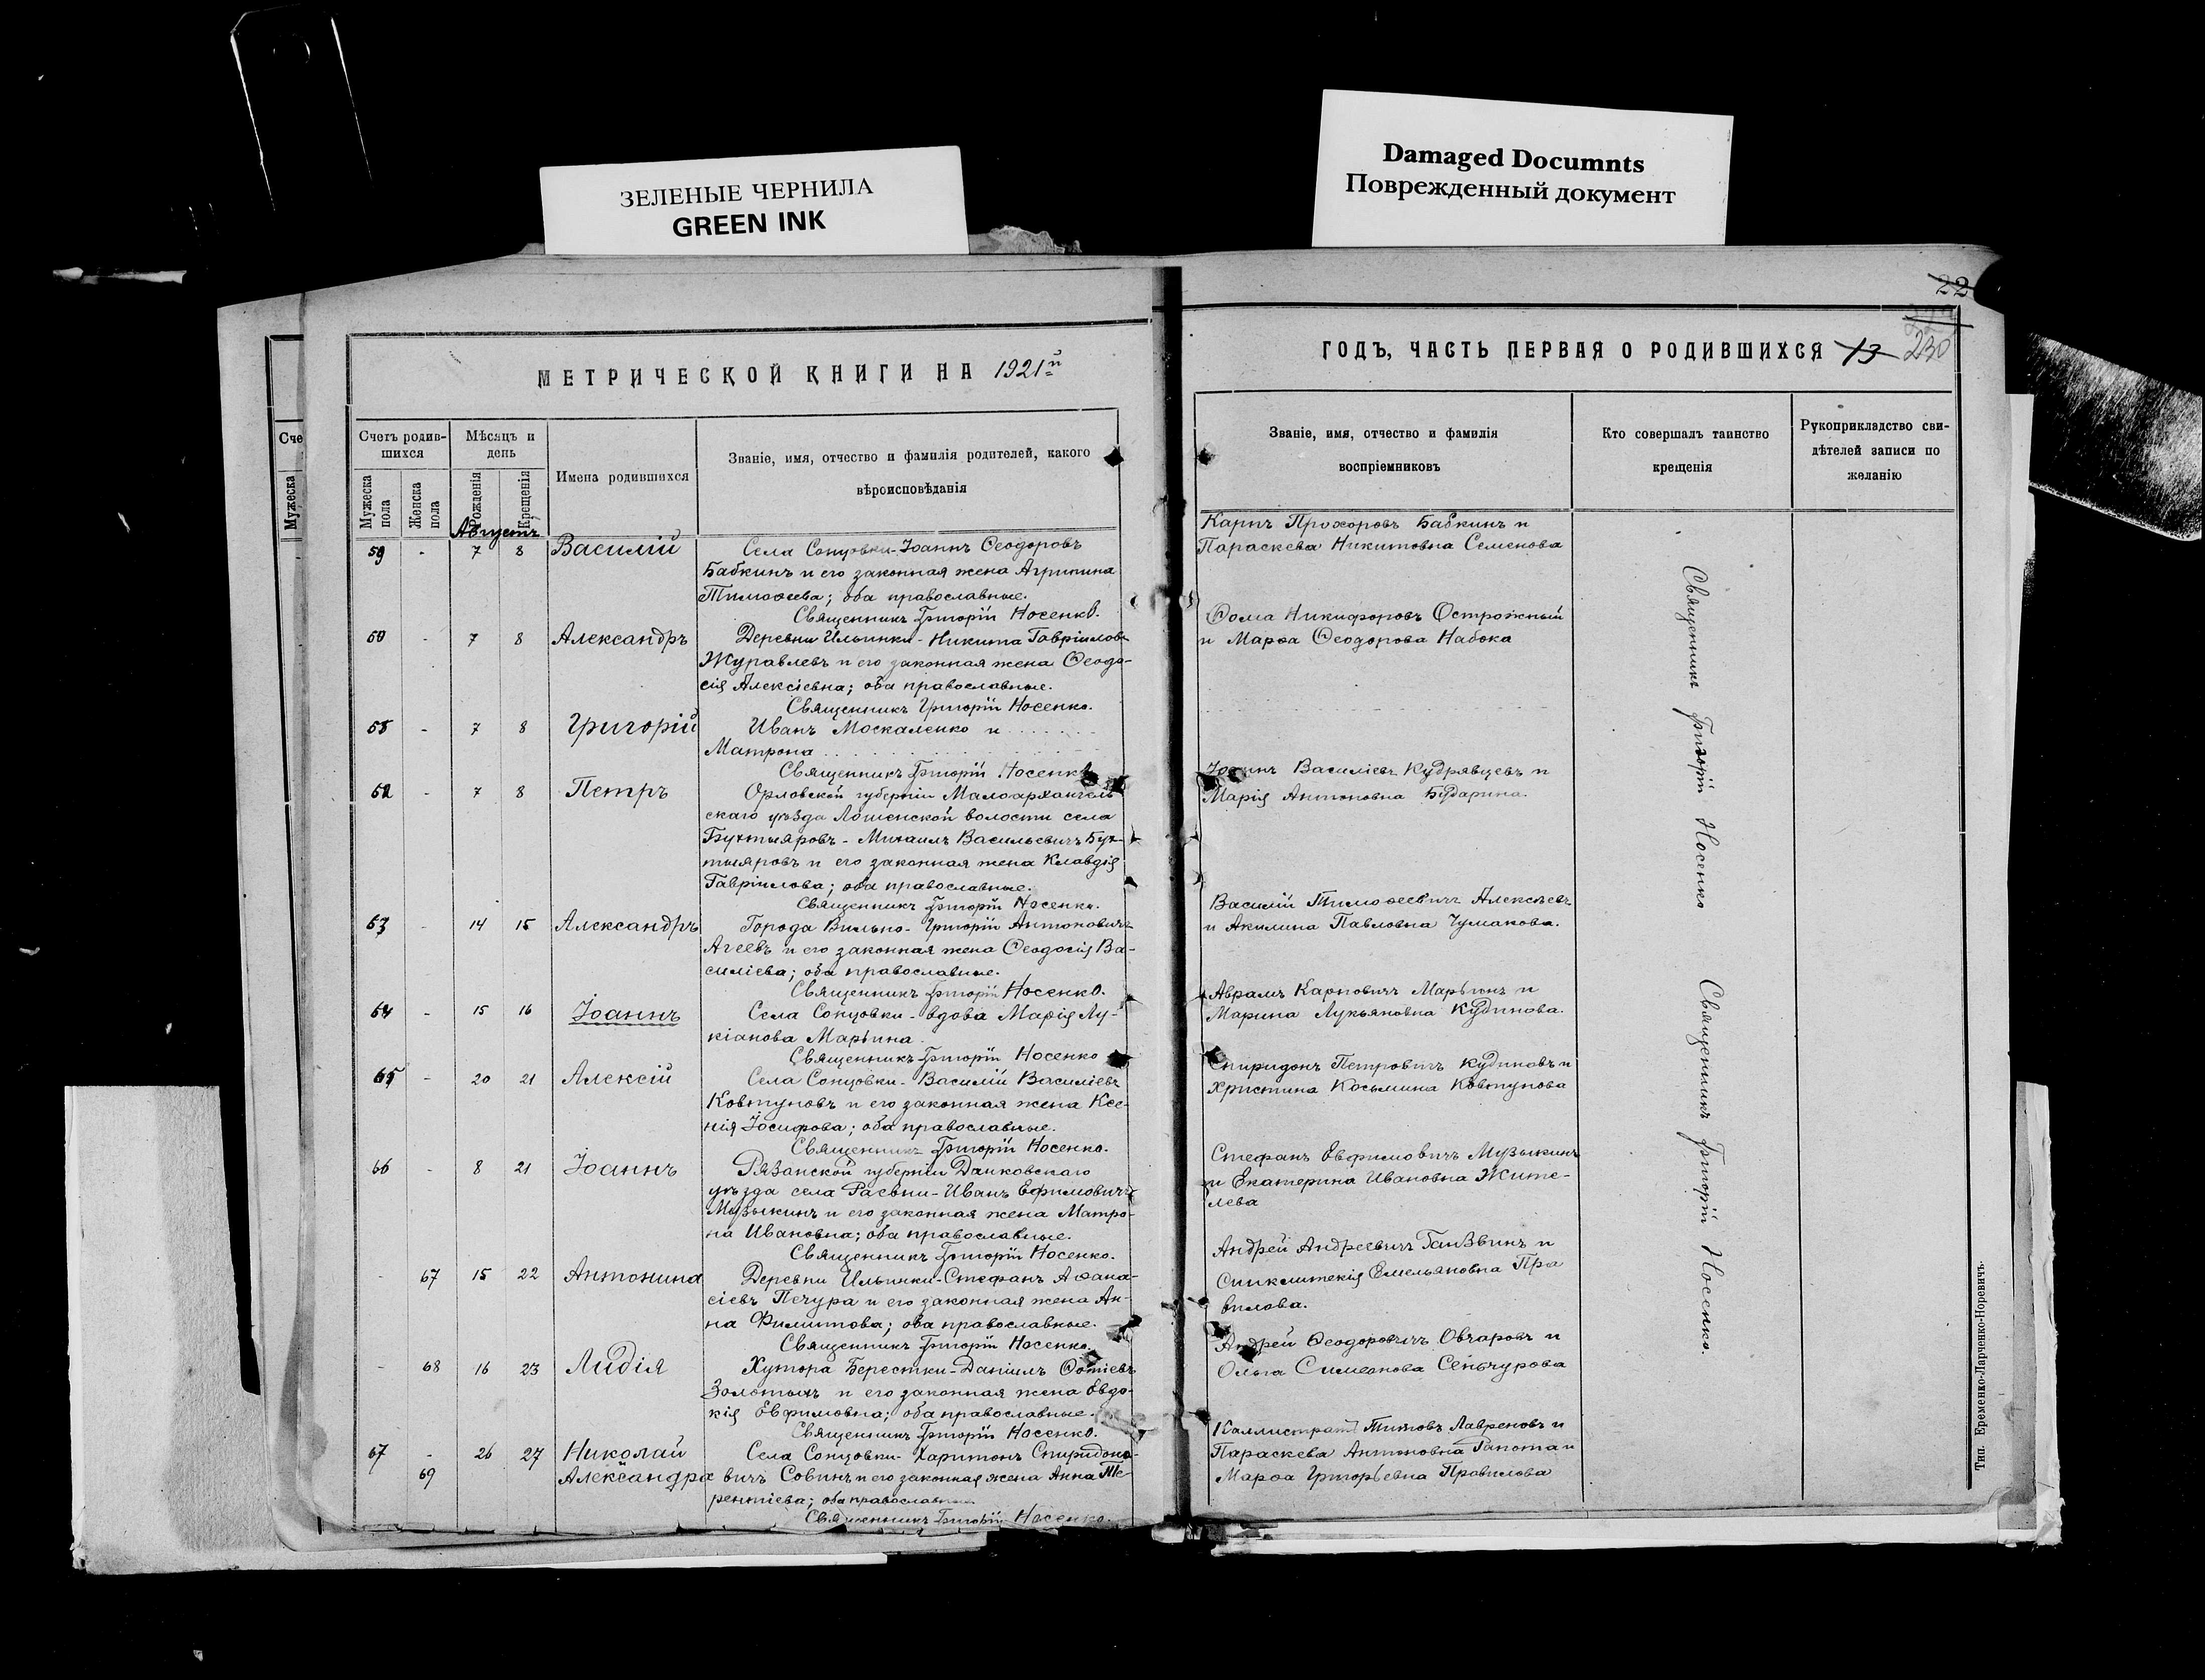 ЗЕЛЕНЫЕ ЧЕРНИЛА
GREEN INK
Damaged Documnts
Поврежденный документ
22
230
МЕТРИЧЕСКОЙ КНИГИ НА 1921й
ГОДЪ, ЧАСТЬ ПЕРВАЯ О РОДИВШИХСЯ 13
Сче
Мужеска
Счетъ родив-
шихся
Мужеска
пола
Женска
пола
Мѣсяцъ и
день
Рожденія
Крещенія
Имена родившихся
Званіе, имя, отчество и фамилія родителей, какого
вѣроисповѣданія
Званіе, имя, отчество и фамилія
воспріемниковъ
Кто совершалъ таинство
крещенія
Рукоприкладство сви-
дѣтелей записи по
желанію
Августъ
59 - 7 8 Василій Села Сонцовки-Іоаннъ Ѳеодоровъ
Бабкинъ и его законная жена Агрипина
Тимоѳеева; оба православные.
Священникъ Григорій Носенко.
Карпъ Прохоровъ Бабкинъ и
Параскева Никитовна Семенова
- 7 8 Александръ Деревни Ильинки-Никита Гавріиловъ
Журавлевъ и его законная жена Ѳеодо-
сія Алексіевна; оба православные.
Священникъ Григорій Носенко.
Ѳома Никифоровъ Острожный
и Марѳа Ѳеодорова Набока
- 7 8 Григорій Иванъ Москаленко и
Матрона
Священникъ Григорій Носенко
62 - 7 8 Петръ Орловской губерніи Малоархангель
скаго уѣзда Лошенской волости села
Бухтыяровъ-Михаилъ Васильевичъ Бух-
тыяровъ и его законная жена Клавдія
Гавріилова; оба православные.
Священникъ Григорій Носенко.
Іоаннъ Василіевъ Кудрявцевъ и
Марія Антоновна Бударина.
63 - 14 15 Александръ Города Вильно-Григорій Антоновичъ
Агеевъ и его законная жена Ѳеодосія Ва-
силіева; оба православные.
Священникъ Григорій Носенко.
Василій Тимоѳеевичъ Алексѣевъ
и Акилина Павловна Чумакова.
64 - 15 16 Іоаннъ Села Сонцовки-вдова Марія Лу-
кіанова Марьина
Священникъ Григорій Носенко
Аврамъ Карповичъ Марьинъ и
Марина Лукьяновна Кудинова.
65 - 20 21 Алексій Села Сонцовки-Василій Василіевъ
Ковтуновъ и его законная жена Ксе-
нія Іосифова; оба православные.
Священникъ Григорій Носенко.
Спиридонъ Петровичъ Кудиновъ и
Христина Косьмина Ковтунова
66 - 8 21 Іоаннъ Рязанской губерніи Данковскаго
уѣзда села Раевки-Иванъ Ефимовичъ
Музыкинъ и его законная жена Матро-
на Ивановна; оба православные.
Священникъ Григорій Носенко.
Стефанъ Евфимовичъ Музыкинъ
и Екатерина Ивановна Жите-
лева
- 67 15 22 Антонина Деревни Ильинки-Стефанъ Аѳана-
сіевъ Печура и его законная жена Ан-
на Филиппова; оба православные.
Священникъ Григорій Носенко.
Андрей Андреевичъ и
Синклитекія Емельяновна Пра
вилова.
- 68 16 23 Лидія Хутора Берестки-Даніилъ Фотіевъ
Золотыхъ и его законная жена Евдо-
кія Евфимовна; оба православные.
Священникъ Григорій Носенко.
Андрей Ѳеодоровичъ Овчаровъ и
Ольга Симеонова Сенчурова
67 - 26 27 Николай Села Сонцовки-Харитонъ Спиридоно-
69 Александра вичъ Совинъ и его законная жена Анна Те-
рентіева; оба православные
Священникъ Григорій Носенко.
Каллистратъ Титовъ Лавреновъ и
Параскева Антоновна Гапота и
Марѳа Григорьевна Правилова
Священникъ Григорій Носенко
Священникъ Григорій Носенко.
Тип. Еременко-Ларченко-Норевичъ.